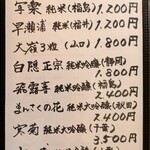 写楽 純米(福島) 1.200円
早瀬浦 純米(福井) 1.200円
大嶺3粒 (山口) 1.800円
白隠正宗 純米大吟醸(静岡)
1.800円
飛露喜 純米大吟醸(福島)
2.400円
まんさくの花 純米大吟醸(秋田)
2.400円
寒菊 純米大吟醸(千葉)
3.500円